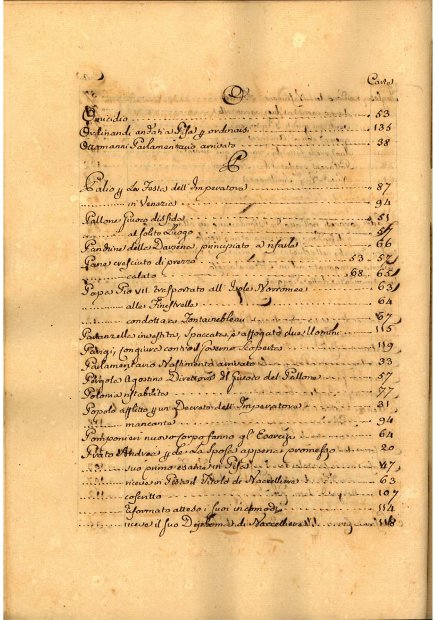 Carte
O
Omicidio 53
Ordinandi andati a Pisa p ordinarsi 135
Ottomanni Parlamentario arrivato 38
P
Palio p la Festa dell'Imperatore 87
in Venezia 94
Pallone Giuoco disfida 51
al solito Luogo 57
Pandine della Darsena principiato a rifarle 66
Pane cresciuto di prezzo 53. 57
calato 68. 65
Papa Pio VII. trasportato all'Isole Norromee 63
alle Finestrelle 64
condotto a Fontainebleau 67
Paranzelle investita, spaccata, e affogato due Uomini 115
Parigi, Congiura contro il Governo scoperta 119
Parlamentario Nastimento arrivato 33
Pergola Agostino Direttore del Giuoco del Pallone 57
Polonia ristabilita 77
Popolo afflitto p un Decreto dell'Imperatore 81
mancante 94
Pompon ieri nuovo Corpo fanno gl'Esercizj 64
Prato Andrea p de la Sposa appena promesso 20
suo primo esame in Pisa 47
riceve in Pisa il Titolo di Naccelliere 63
coscritto 107
riformato atteso i suoi incomodi 114
riceve il suo Diploma di Naccelliere 118